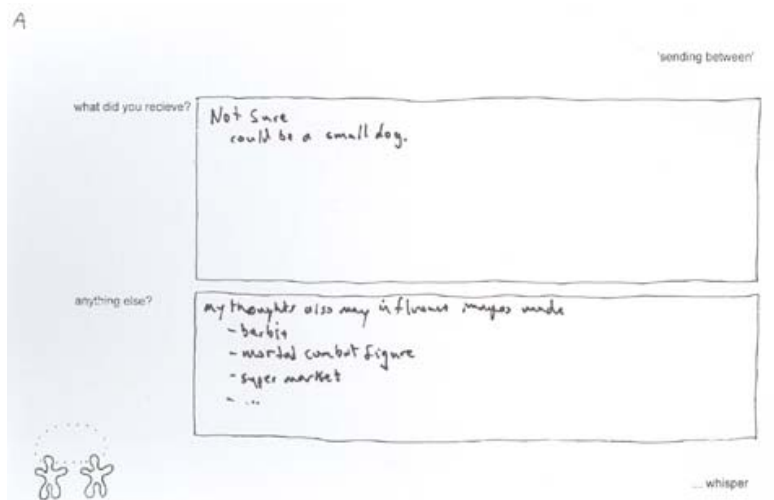 A
'sending between'
what did you recieve?
Not Sure
could be a small dog.
anything else?
my thoughts also may influence images made
- barbie
- mortal combat figure
- super market
- ...
... whisper